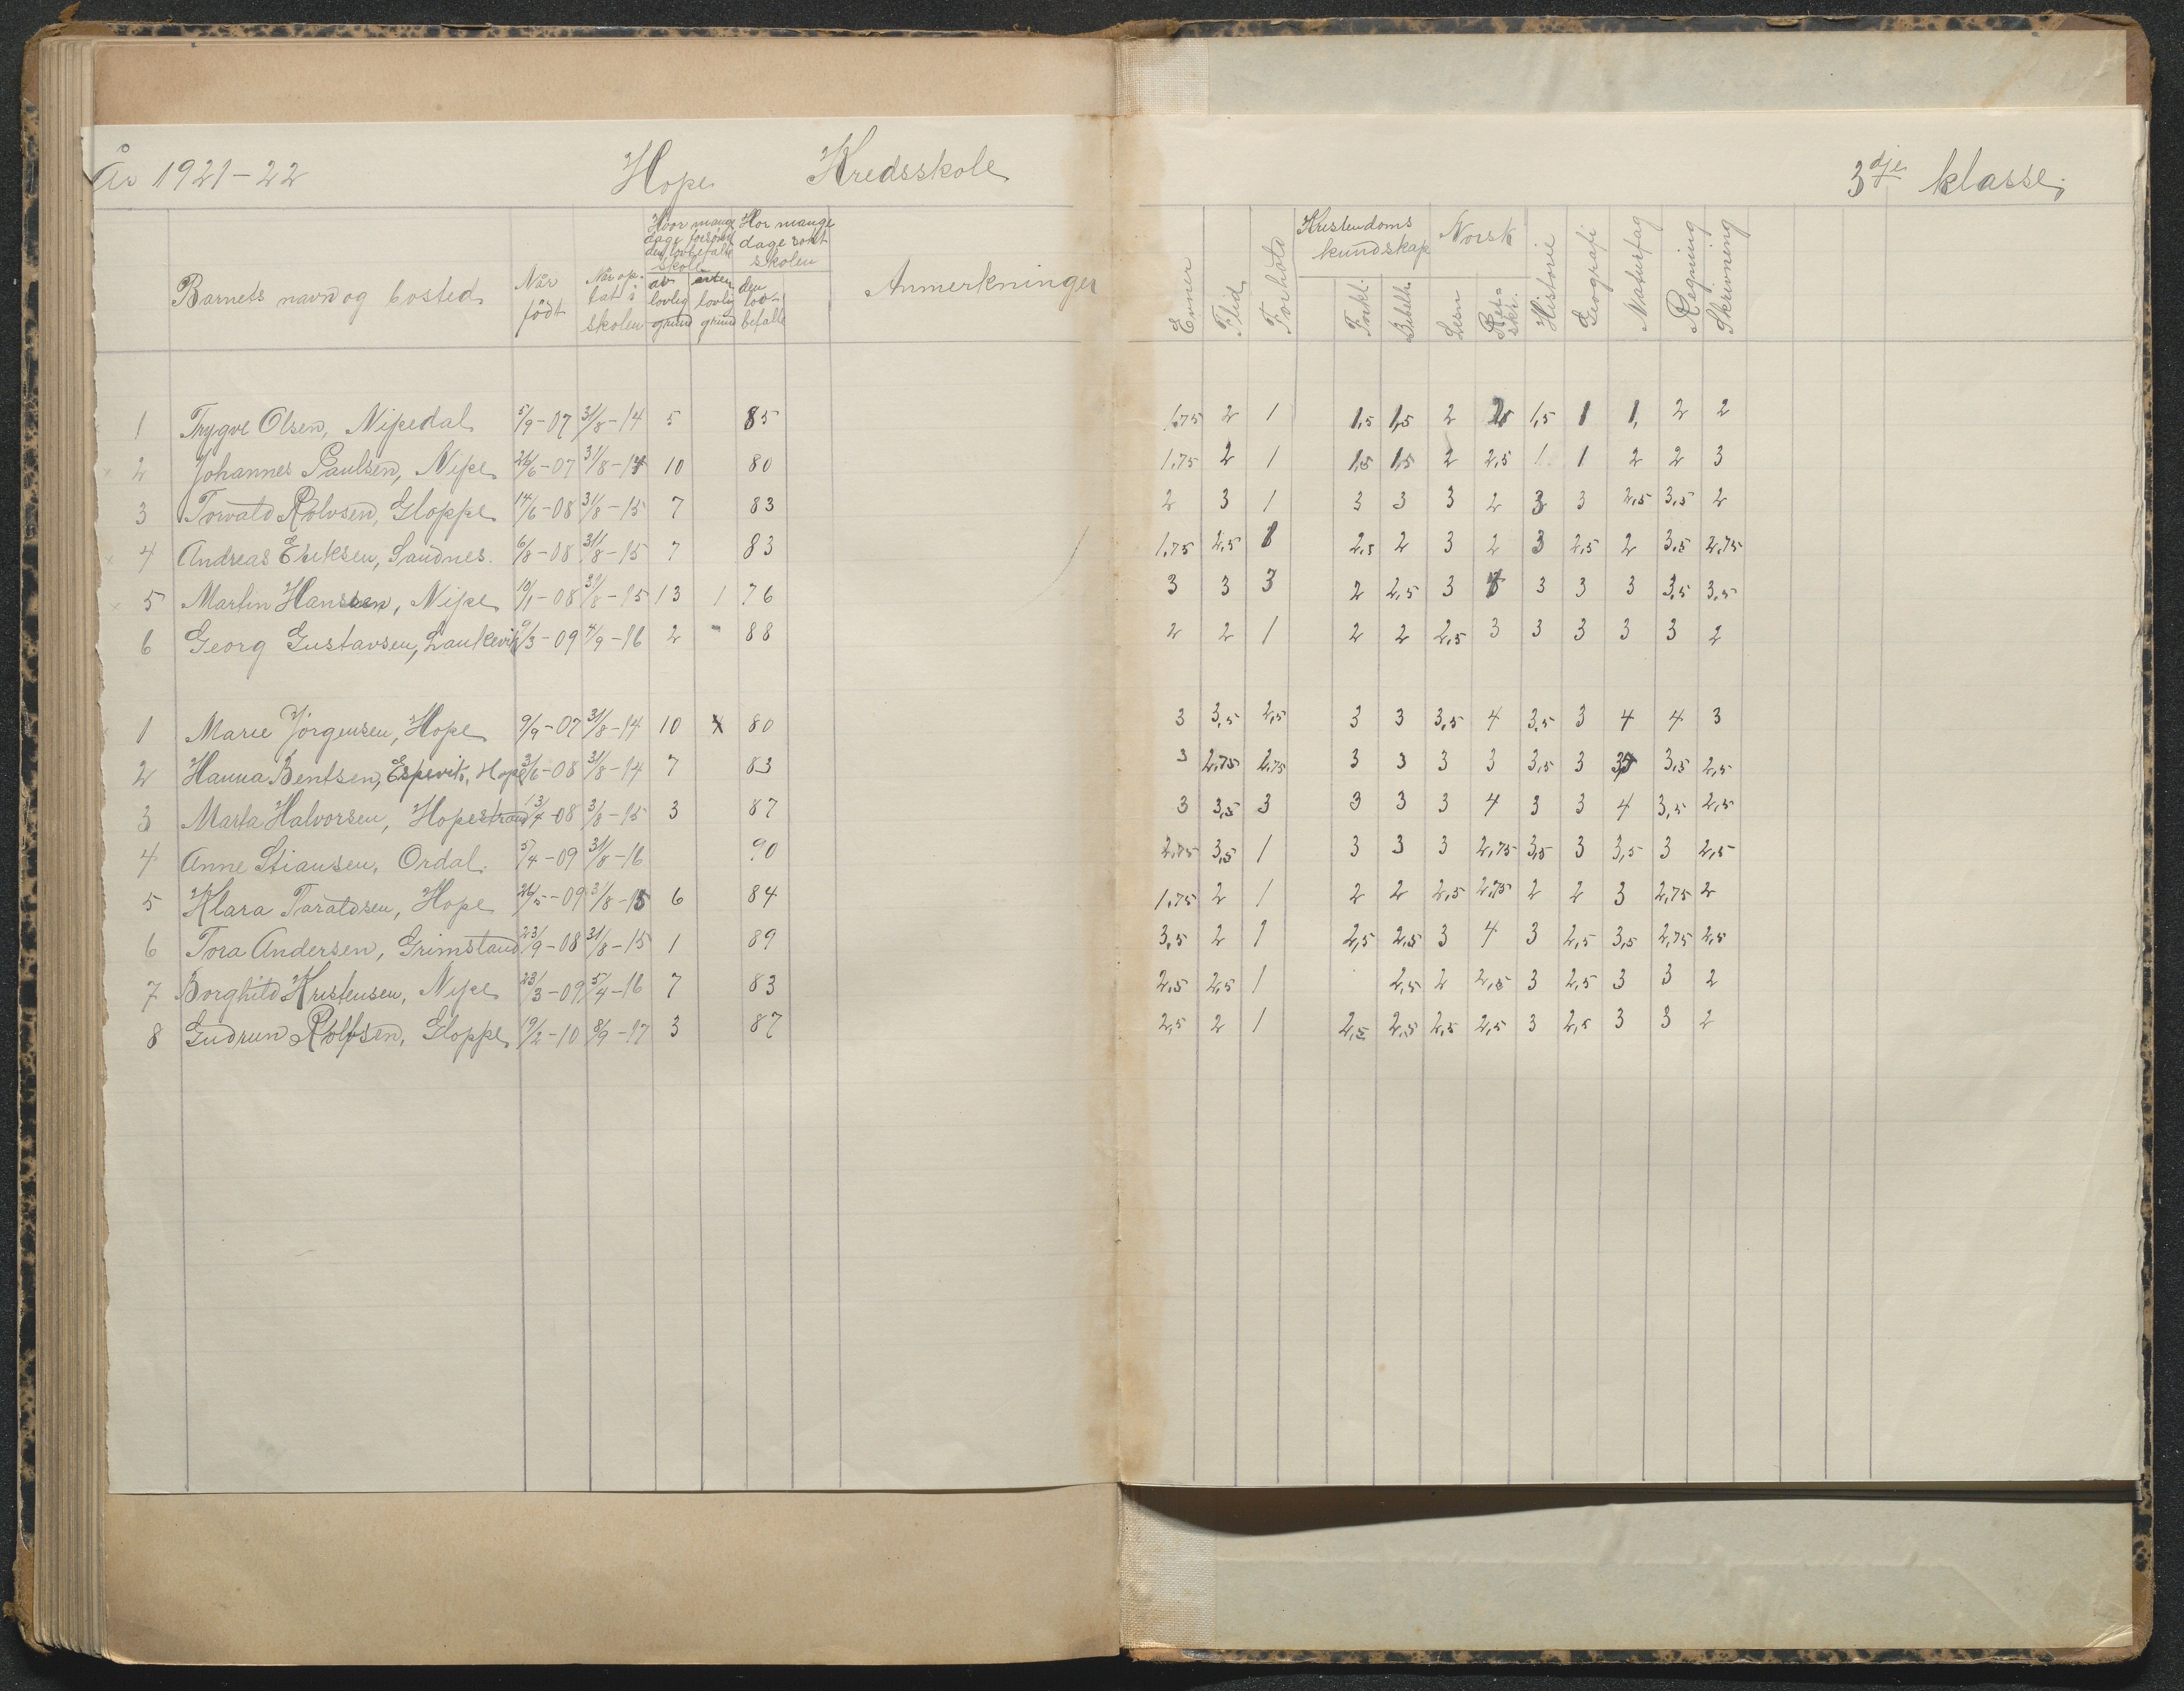 År 1921-22 Hope Kredsskole 3dje klasse.
Barnets navn og bosted Når født Når optat i skolen Hvor mange dage forsømt den lovbefalte skole av lovlig grund uten lovlig grund Hor mange dage søkt skolen den lovbefalte Anmerkninger Evner Flid Forhold Kristendoms kundskap Forkl. Bibelh. Norsk Læsn Retskr. Historie Geografi Naturfag Regning Skrivning
1 Thygve Olsen, Nipedal 5/9-07 31/8-14 5 85 1,75 2 1 1,5 1,5 2 1,5 1 1, 2 2
2 Johannes Paulsen, Nipe 26/6-07 31/8-14 10 80 1,75 2 1 1,5 1,5 2 2,5 1 1 2 2 3
3 Torvald Rolvsen, Gloppe 14/6-08 31/8-15 7 83 2 3 1 3 3 3 2 3 3 2,5 3,5 2
4 Andreas Eriksen, Sandnes. 6/8-08 31/8-15 7 83 1,75 2,5 1 2,5 2 3 2 3 2,5 2 3,5 2,75
5 Martin Hansen, Nipe 10/1-08 31/8-15 13 1 76 3 3 3 2 2,5 3 3 3 3 3,5 3,5
6 Georg Gustavsen, Laukevik 9/3-09 4/9-16 2 " 88 2 2 1 2 2 2,5 3 3 3 3 3 2
1 Marie Jörgensen, Hope 9/9-07 31/8-14 10 80 3 3,5 2,5 3 3 3,5 4 3,5 3 4 4 3
2 Hanna Bentsen, Espevik, Hope 3/6-08 31/8-14 7 83 3 2,75 2,75 3 3 3 3 3,5 3 3,5 2,5
3 Marta Halvorsen, Hopestrand 13/4-08 31/8-15 3 87 3 3,5 3 3 3 3 4 3 3 4 3,5 2,5
4 Anne Stiansen, Ordal. 5/4-09 31/8-16 90 2,75 3,5 1 3 3 3 2,75 3,5 3 3,5 3 2,5
5 Klara Taraldsen, Hope 26/5-09 31/8-15 6 84 1,75 2 1 2 2 2,5 2,75 2 2 3 2,75 2
6 Tora Andersen, Grimsland 23/9-08 31/8-15 1 89 3,5 2 1 2,5 2,5 3 4 3 2,5 3,5 2,75 2,5
7 Borghild Kristensen, Nipe 23/3-09 5/4-16 7 83 2,5 2,5 1 2,5 2 2,5 3 2,5 3 3 2
8 Gudrun Rolfsen, Gloppe 19/2-10 8/9-17 3 87 2,5 2 1 2,5 2,5 2,5 2,5 3 2,5 3 3 2